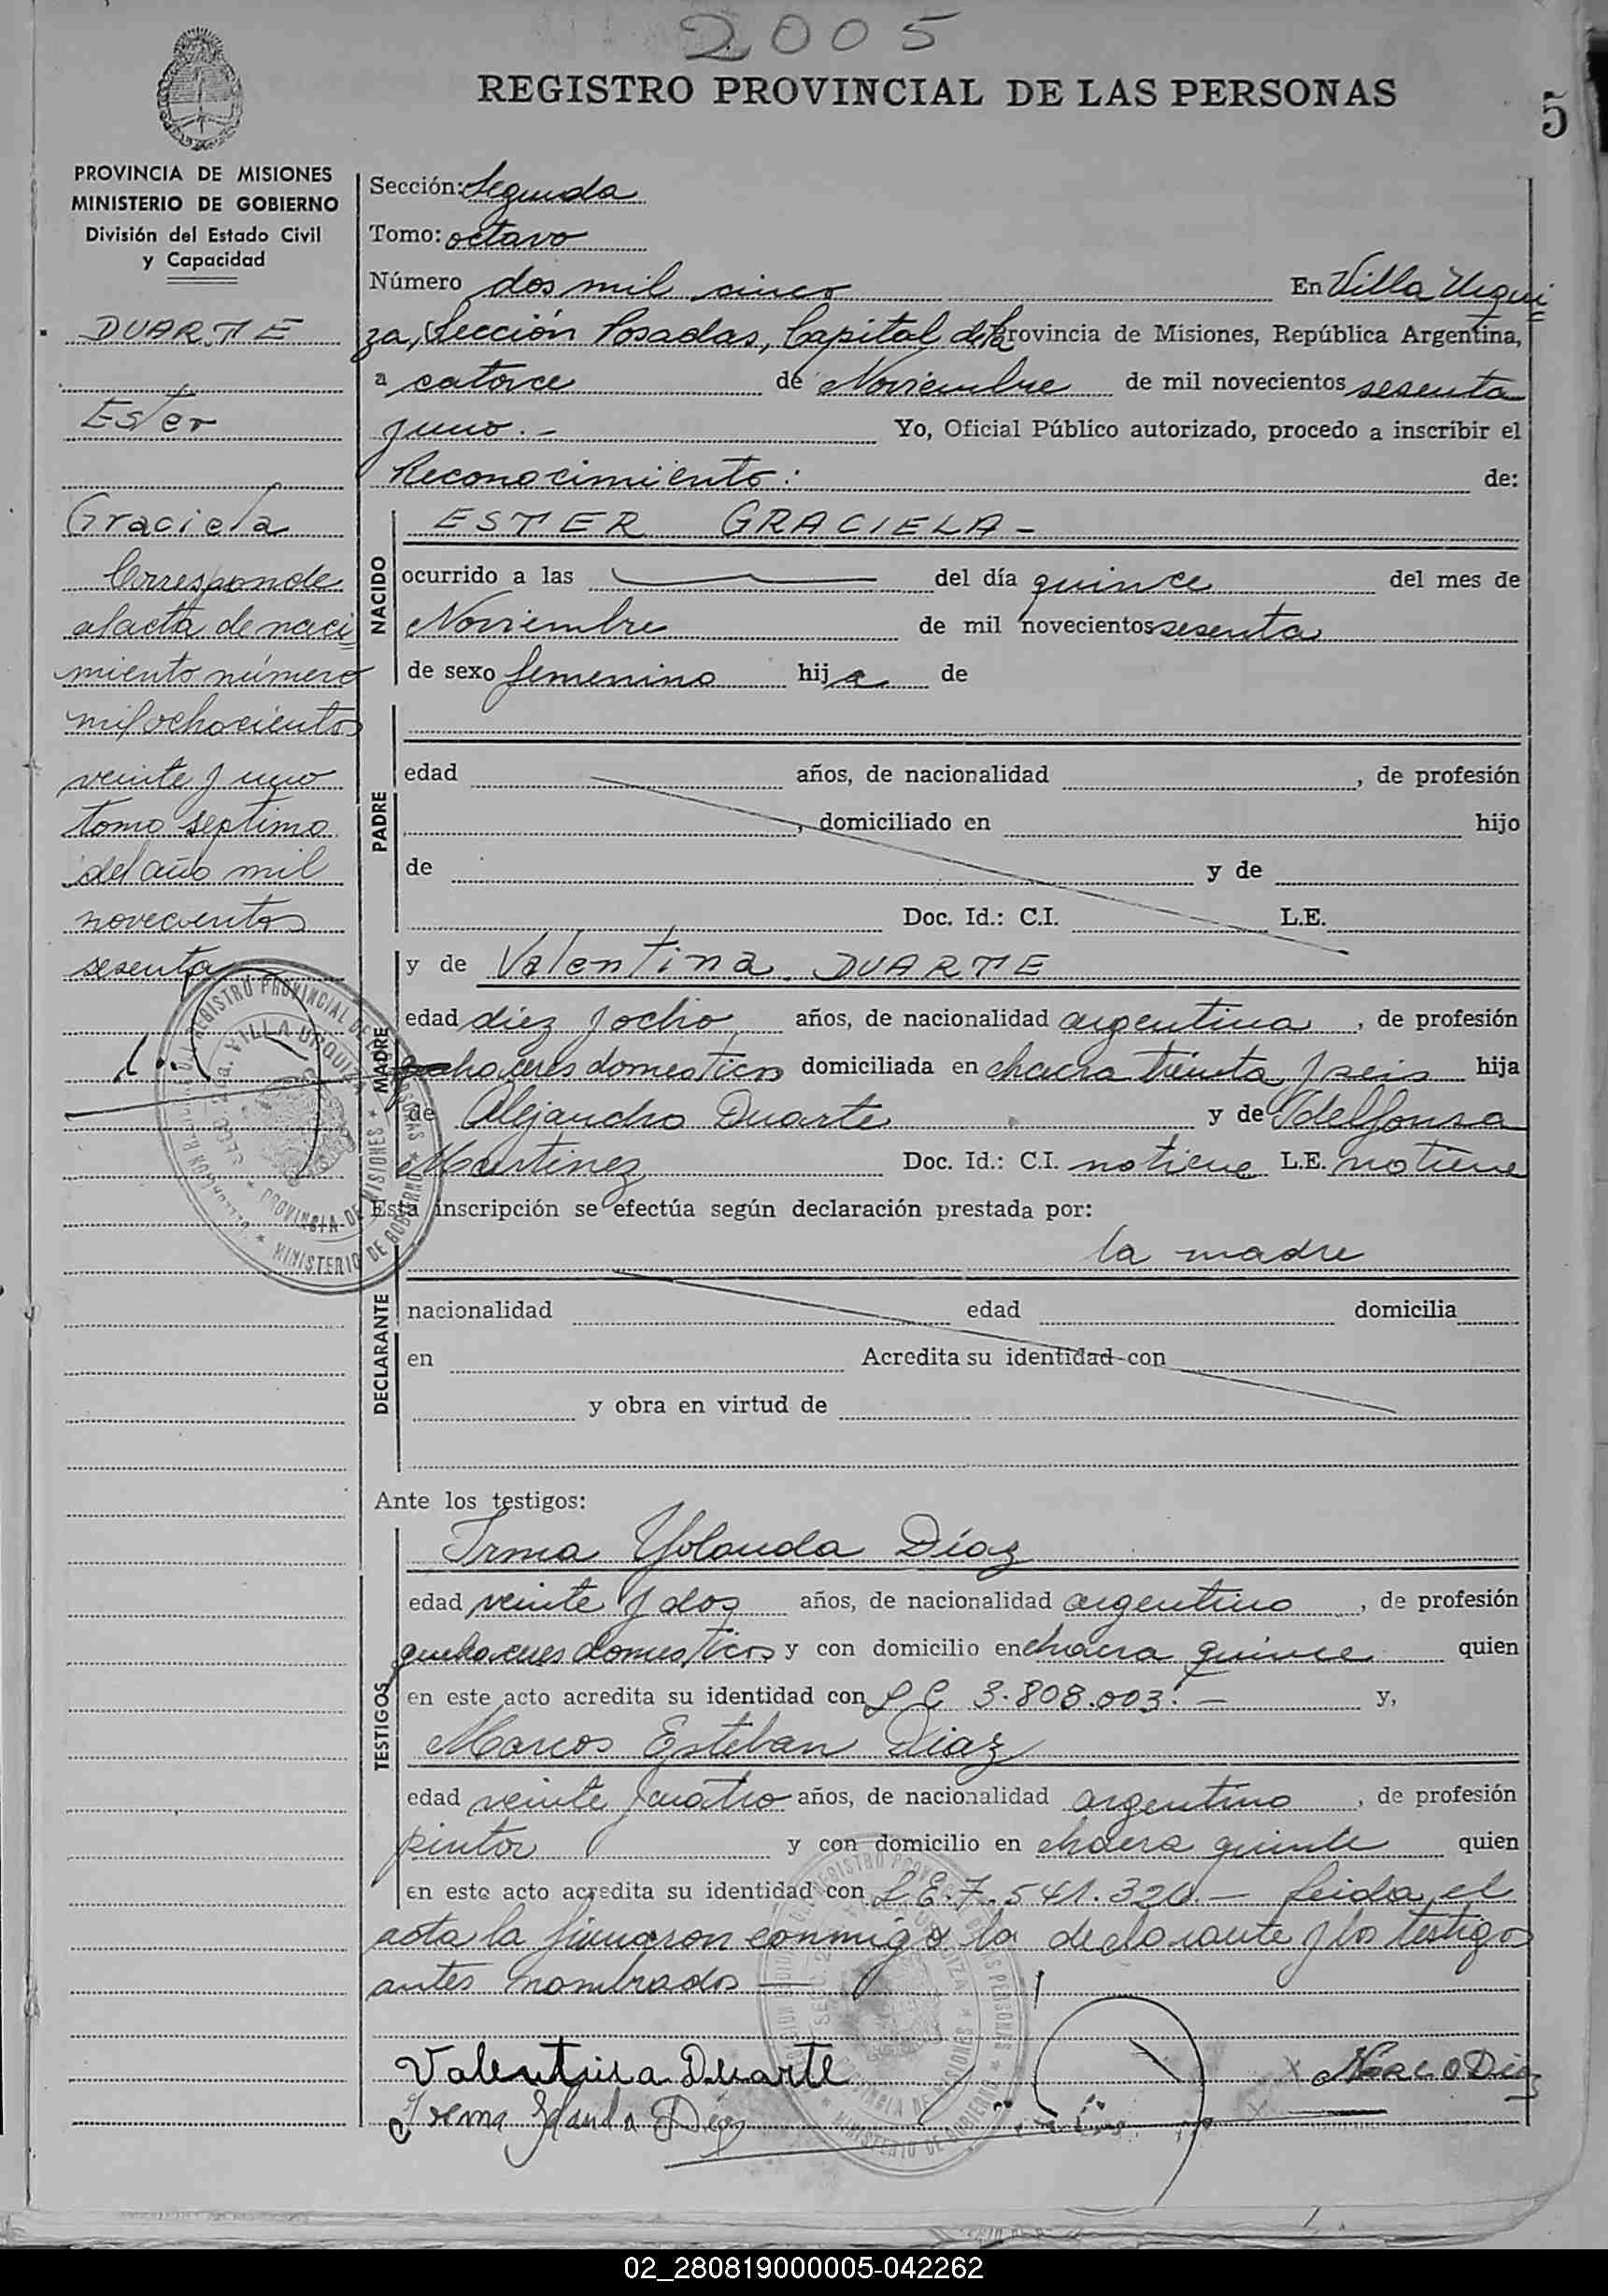 2005
REGISTRO PROVINCIAL DE LAS PERSONAS
5
PROVINCIA DE MISIONES
MINISTERIO DE GOBIERNO
División del Estado Civil
y Capacidad
DUARTE
Ester
Graciela
Corresponde
al acta de naci
miento número
mil ochocientos
veinte y uno
tomo septimo
del año mil
novecientos
sesenta
Sección: Segunda
Tomo: octavo
Número dos mil cinco En Villa Urqui
za, Sección Posadas, Capital de la Provincia de Misiones, República Argentina,
a catorce de Noviembre de mil novecientos sesenta
y uno.- Yo, Oficial Público autorizado, procedo a inscribir el
Reconocimiento: de:
NACIDO
ESTER GRACIELA-
ocurrido a las del día quince del mes de
Noviembre de mil novecientos sesenta
de sexo femenino hija de
PADRE
edad años, de nacionalidad , de profesión
, domiciliado en hijo
de y de
Doc. Id.: C.I. L.E.
MADRE
y de Valentina DUARTE
edad diez y ocho años, de nacionalidad argentina, de profesión
quehaceres domesticos domiciliada en chacra treinta y seis hija
de Alejandro Duarte y de Idelfonsa
Martinez Doc. Id.: C.I. no tiene L.E. no tiene
Esta inscripción se efectúa según declaración prestada por:
la madre
DECLARANTE
nacionalidad edad domicilia
en Acredita su identidad con
y obra en virtud de
Ante los testigos:
TESTIGOS
Irma Yolanda Díaz
edad veinte y dos años, de nacionalidad argentino, de profesión
quehaceres domesticos y con domicilio en chacra quince quien
en este acto acredita su identidad con L C 3.808.003.- y,
Marcos Esteban Diaz
edad veinte y cuatro años, de nacionalidad argentino, de profesión
pintor y con domicilio en chacra quince quien
en este acto acredita su identidad con L.E. 7.541.320.- Leida el
acta la firmaron conmigo la declarante y los testigos
antes nombrados
Valentina Duarte
Marco Díaz
Irma Yolanda Díaz
02_280819000005-042262